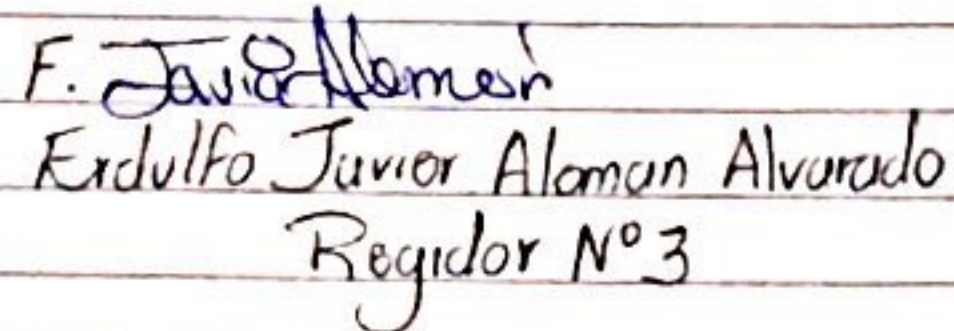 F. Javier Aleman
Erdulfo Javier Aleman Alvarado
Regidor Nº 3